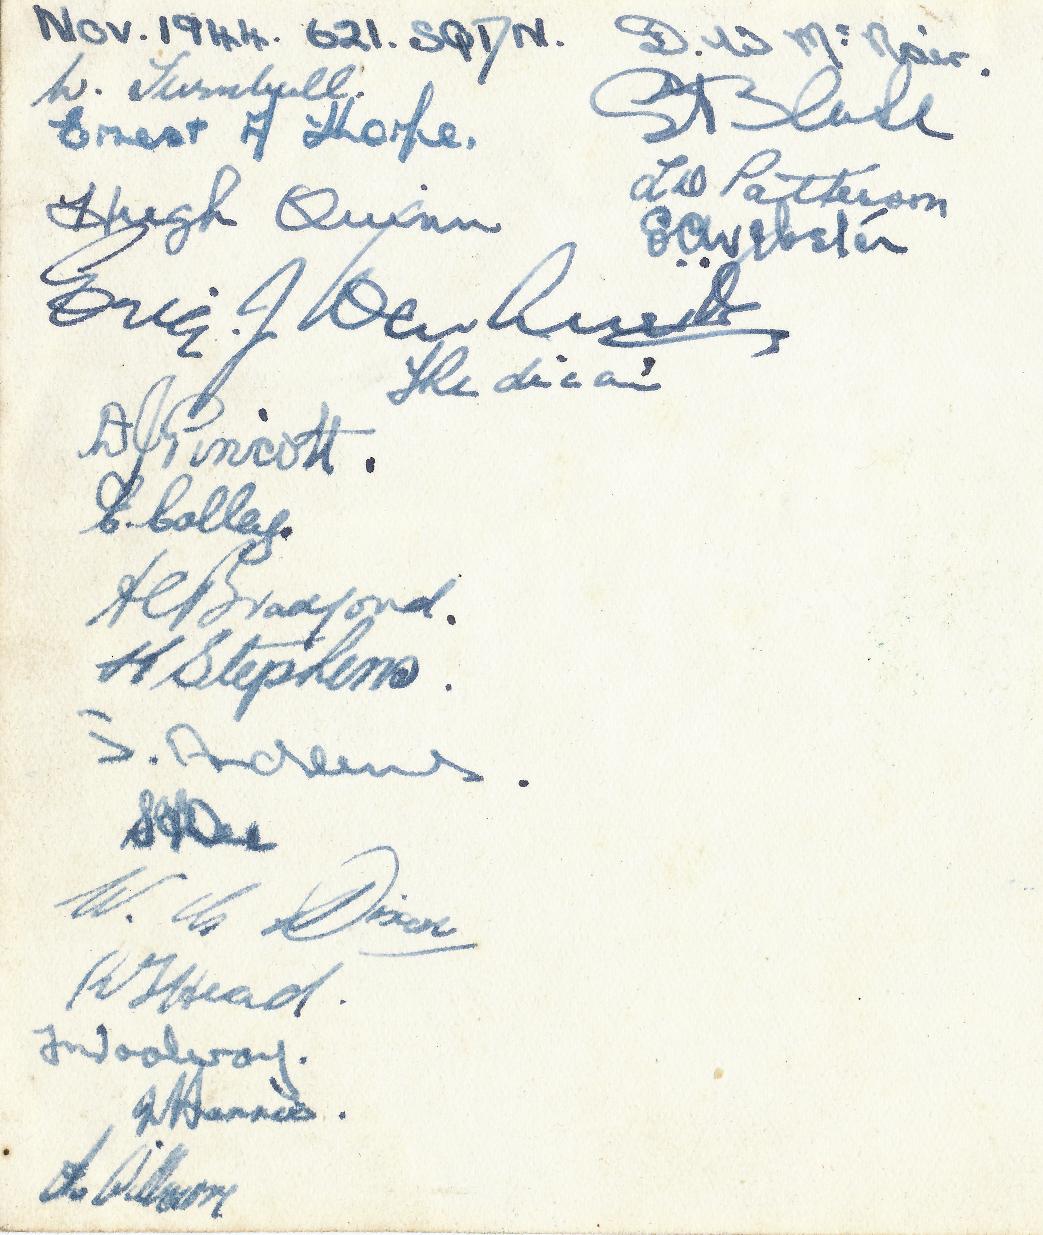 Nov. 1944. 621. SQD/N.
L. Turnbull.
Ernest A Thorpe.
Hugh Quinn
Eric. J
The dicai
D J Pinicott.
E. Colley.
H C Bradford.
H Stephens.
S. Andrews.
W. Dixon
Head.
J Woolway.
J H Harris.
L.
D. W McNair.
Black
Patterson
E A Webster